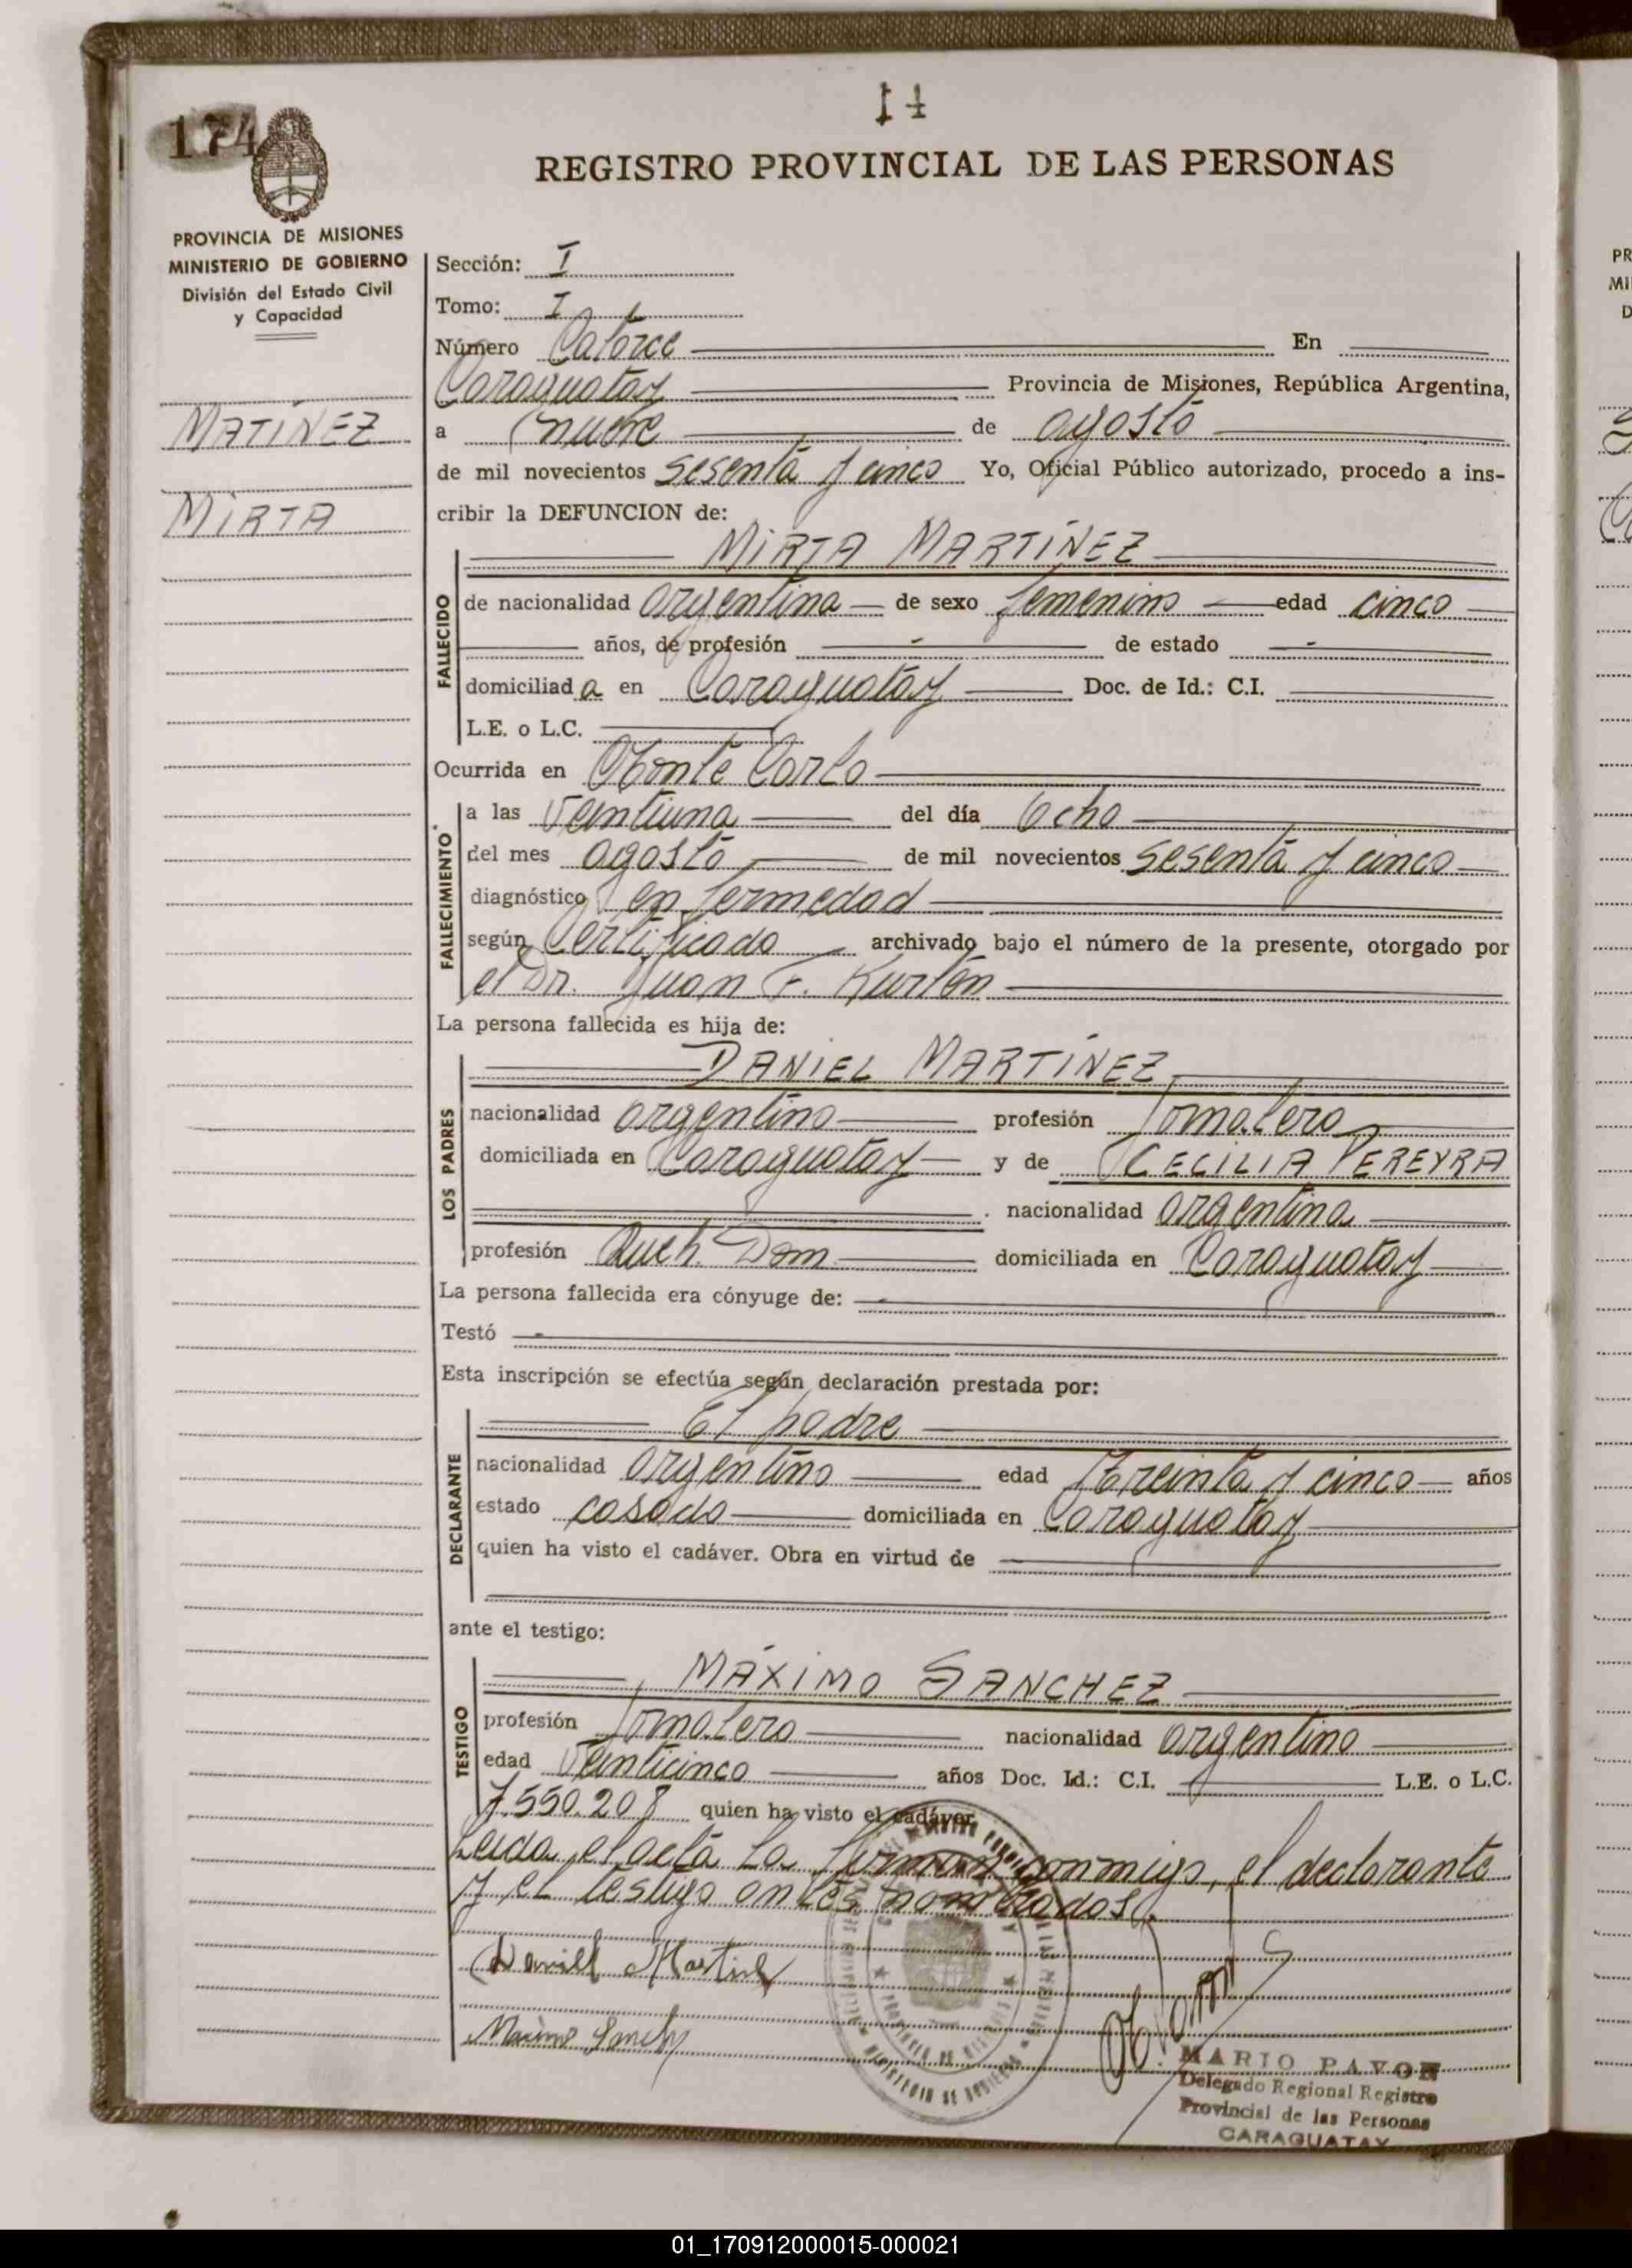 14
174
REGISTRO PROVINCIAL DE LAS PERSONAS
PROVINCIA DE MISIONES
MINISTERIO DE GOBIERNO
División del Estado Civil
y Capacidad
MATÍNEZ
MIRTA
Sección: I
Tomo: I
Número Catorce En
Caraguatay Provincia de Misiones, República Argentina,
a nueve de agosto
de mil novecientos sesenta y cinco Yo, Oficial Público autorizado, procedo a ins-
cribir la DEFUNCION de:
MIRTA MARTÍNEZ
FALLECIDO
de nacionalidad argentina de sexo femenino edad cinco
años, de profesión - de estado -
domiciliada en Caraguatay Doc. de Id.: C.I.
L.E. o L.C.
Ocurrida en Monte Carlo
FALLECIMIENTO
a las veintiuna del día ocho
del mes agosto de mil novecientos sesenta y cinco
diagnóstico enfermedad
según Certificado archivado bajo el número de la presente, otorgado por
el Dr. Juan F.
La persona fallecida es hija de:
DANIEL MARTÍNEZ
LOS PADRES
nacionalidad argentino profesión Jornalero
domiciliada en Caraguatay y de CECILIA PEREYRA
nacionalidad argentina
profesión Queh. Dom domiciliada en Caraguatay
La persona fallecida era cónyuge de: -
Testó -
Esta inscripción se efectúa según declaración prestada por:
El padre
DECLARANTE
nacionalidad argentino edad Treinta y cinco años
estado casado domiciliada en Caraguatay
quien ha visto el cadáver. Obra en virtud de
ante el testigo:
MÁXIMO SANCHEZ
TESTIGO
profesión Jornalero nacionalidad argentino
edad Veinticinco años Doc. Id.: C.I. L.E. o L.C.
7.550.208 quien ha visto el cadáver
Leida el acta la firman conmigo, el declarante
y el testigo antes nombrados.
MARIO PAVON
Delegado Regional Registro
Provincial de las Personas
CARAGUATAY
PR
MI
D
01_170912000015-000021